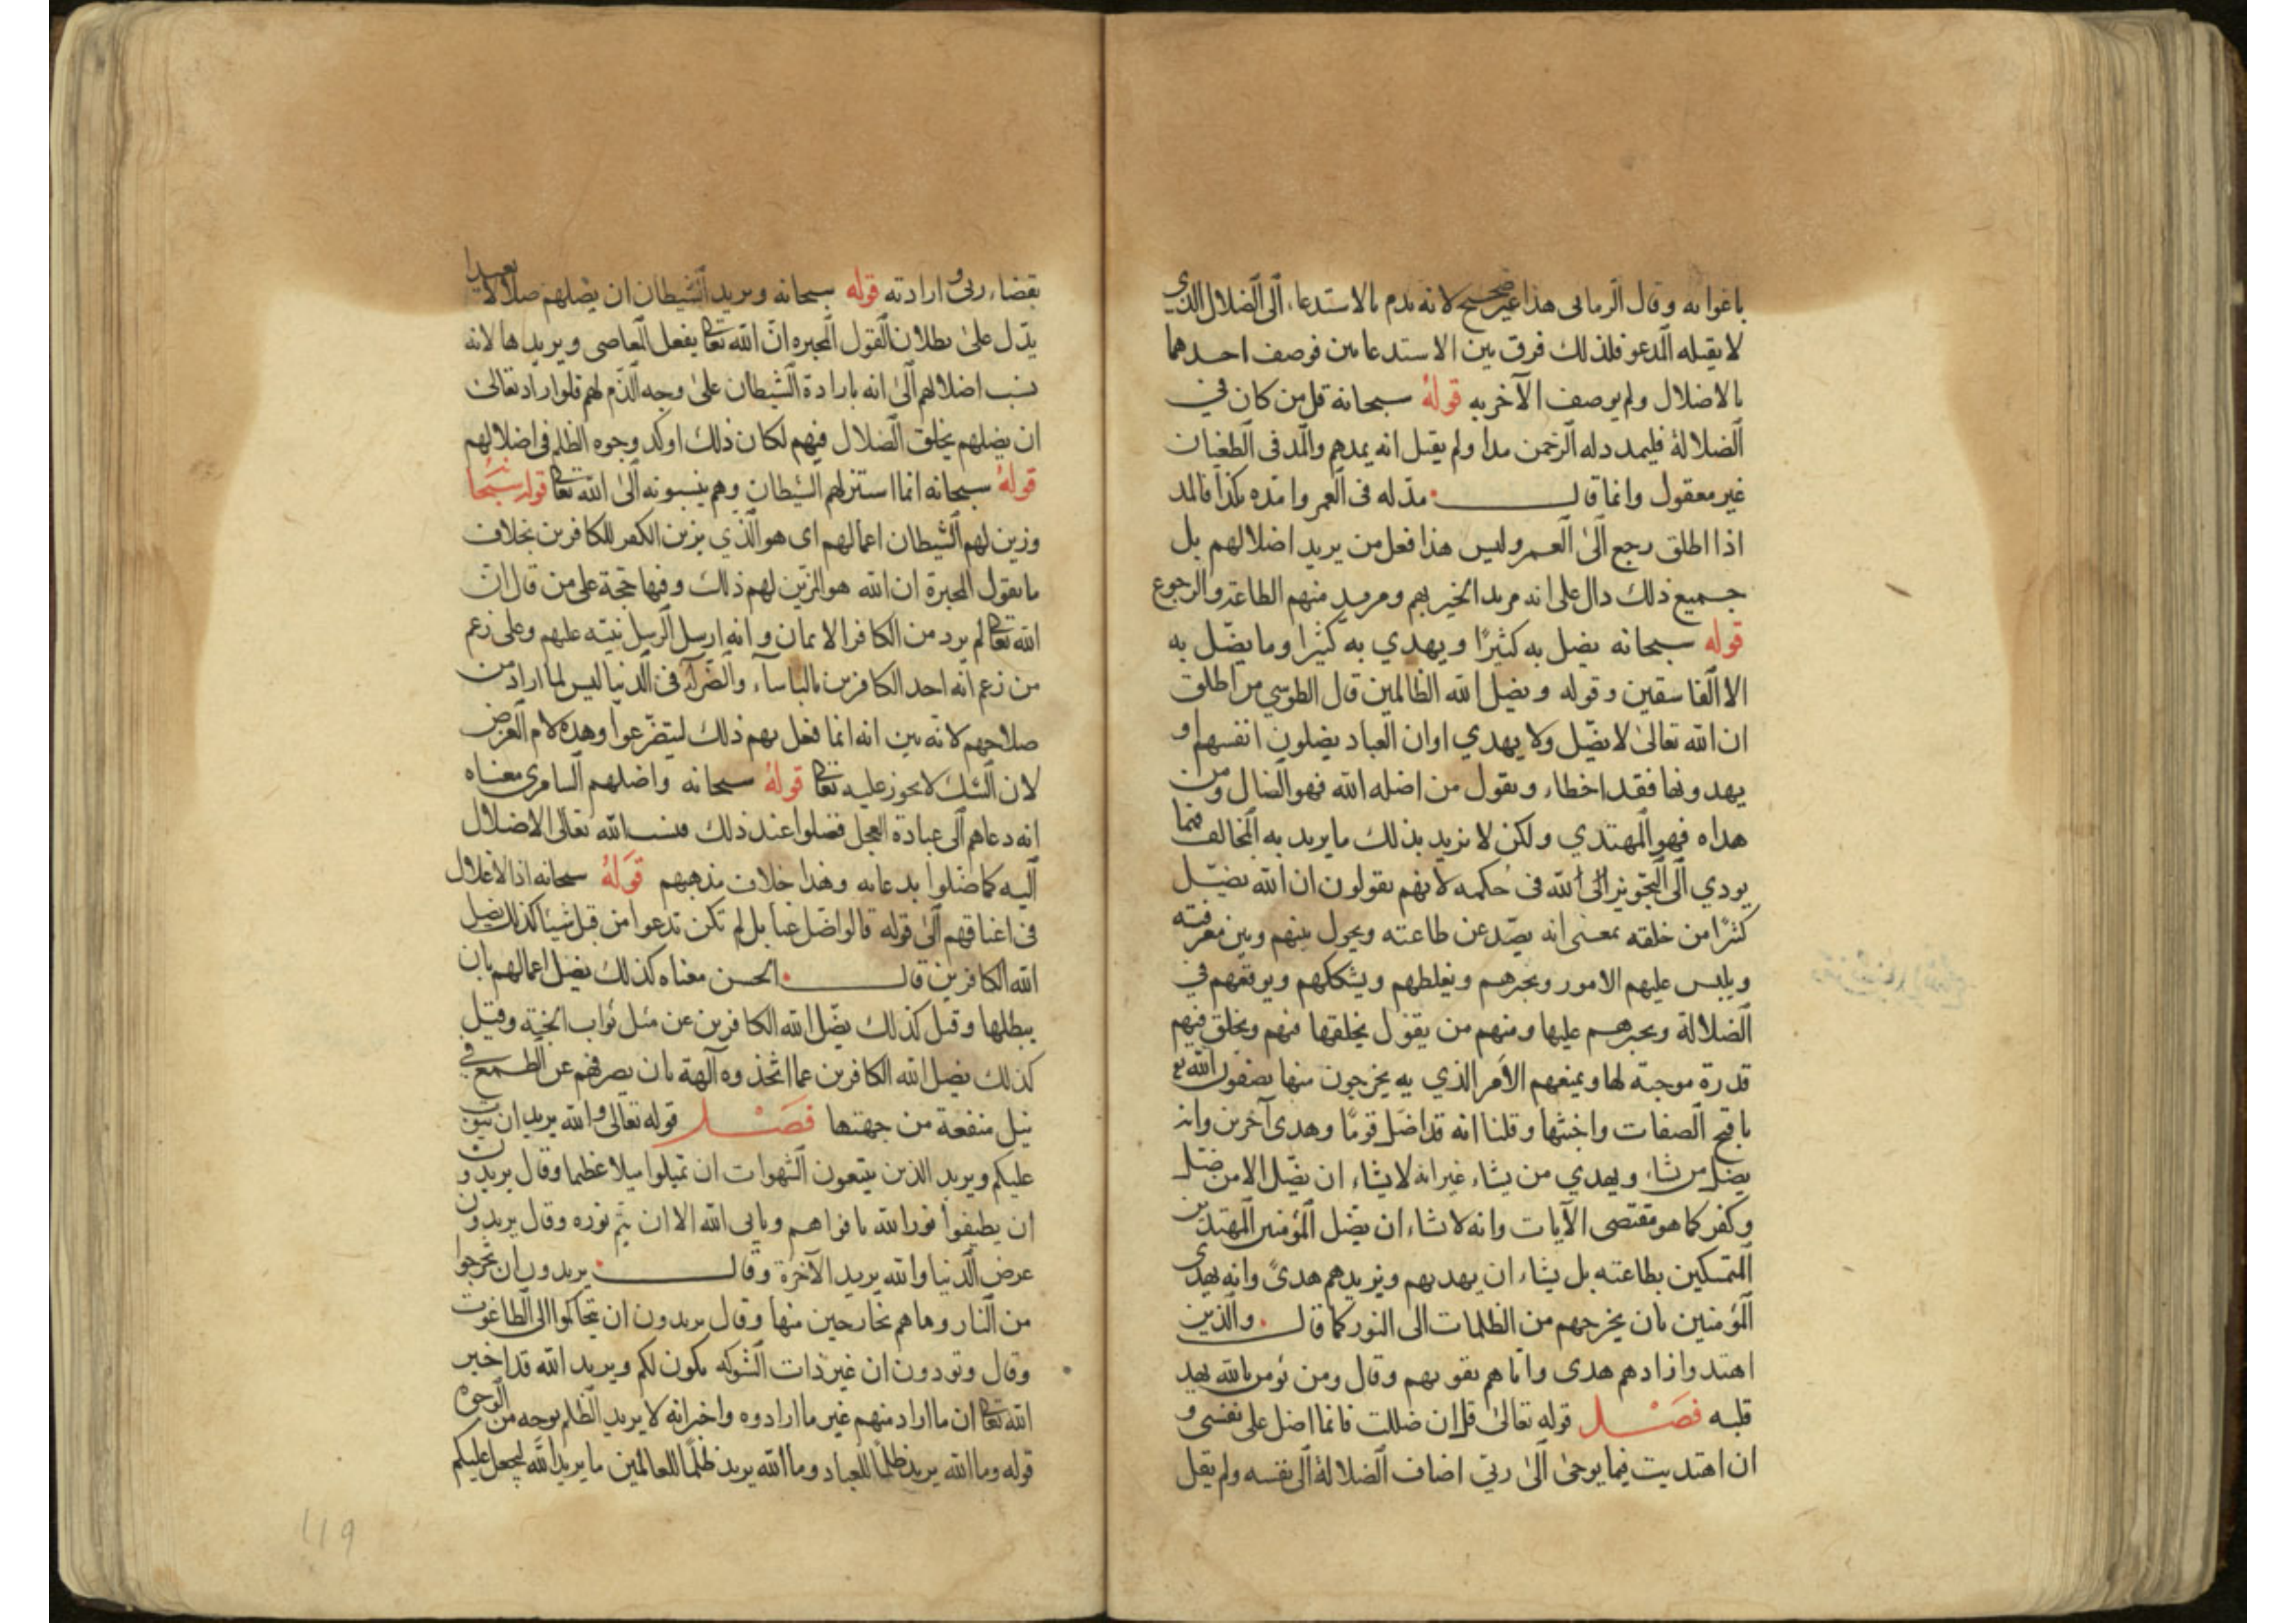 باغوائه وقال الرماني هذا غير صحيح لانه يذم بالاستدعاء الى الضلال الذي
لا يقبله المدعو فلذلك فرق بين الاستدعا مين فوصف احدهما
بالاضلال ولم يوصف الآخر به قوله سبحانه قل من كان في
الضلالة فليمدد له الرحمن مدا ولم يقل انه يمدهم والمد في الطغيان
غير معقول وانما قال مدّ له في العمر وامدّه بكذا فالمد
اذا اطلق رجع الى العمر وليس هذا فعل من يريد اضلالهم بل
جميع ذلك دال على انه مريد الخير بهم ومريد منهم الطاعة والرجوع
قوله سبحانه يضل به كثيرًا ويهدي به كثيرا وما يضل به
الا الفاسقين وقوله ويضل الله الظالمين قال الطوسي من اطلق
ان الله تعالى لا يضل ولا يهدي او ان العباد يضلون انفسهم او
يهدونها فقد اخطاء ويقول من اضله الله فهو الضال ومن
هداه فهو المهتدي ولكن لا نريد بذلك ما يريد به المخالف فيما
يودي الى التجويز الى الله في حكمه لانهم يقولون ان الله يضل
كثرًا من خلقه بمعنى انه يصد عن طاعته ويحول بينهم وبين معرفته
ويلبس عليهم الامور ويحيرهم ويغلطهم ويشككهم ويوقعهم في
الضلالة ويجبرهم عليها ومنهم من يقول يخلقها فيهم ويخلق فيهم
قدرة موجبة لها ويمنعهم الأمر الذي به يخرجون منها يصفون الله تع
باقبح الصفات واخبثها وقلنا انه قد اضل قومًا وهدى آخرين وانه
يضل من شاء ويهدي من يشاء غير انه لا يشاء ان يضل الا من ضل
وكفر كما هو مقتضى الآيات وانه لا يشاء ان يضل المؤمنين المهتدين
المتمسكين بطاعته بل يشاء ان يهديهم ويزيدهم هدىً وانه يهدى
المؤمنين بان يخرجهم من الظلمات الى النور كما قال والذين
اهتدوا زادهم هدى واتاهم تقويهم وقال ومن يومن بالله يهد
قلبه فصل قوله تعالى قل ان ضللت فانما اضل على نفسى و
ان اهتديت فيما يوحى الى ربي اضاف الضلالة الى نفسه ولم يقل
بقضاء ربي وارادته قوله سبحانه ويريد الشيطان ان يضلهم ضلالا بعيدا
يدّل على بطلان القول المجبره ان الله تعالى يفعل المعاصي ويريدها لانه
نسب اضلالهم الى انه بارادة الشيطان على وجه الذم لهم فلو اراد تعالى
ان يضلهم بخلق الضلال فيهم لكان ذلك اوكد وجوه الظلم في اضلالهم
قوله سبحانه انما استزلهم الشيطان وهم ينسبونه الى الله تعالى قوله سبحا
وزين لهم الشيطان اعمالهم اى هو الذي يزين الكفر للكافرين بخلاف
ما يقول المجبرة ان الله هو المزين لهم ذلك وفيها حجة على من قال ان
الله تعالى لم يرد من الكافر الايمان وانه ارسل الرسل نبيه عليهم وعلى زعم
من زعم انه احد الكافرين بالباساء والضراء في الدنيا ليس لما اراد من
صلاحهم لانه بين انه انما فعل بهم ذلك ليتضرعوا وهذه لام الغرض
لان الشك لا يجوز عليه تعالى قوله سبحانه واضلهم السامرى معناه
انه دعاهم الى عبادة العجل فضلوا عند ذلك فنسب الله تعالى الاضلال
اليه كما ضلوا بدعائه وهذا خلاف مذهبهم قوله سبحانه اذ الاغلال
في اعناقهم الى قوله قالوا ضل عنا بل لم تكن تدعوا من قبل شيئا كذلك يضل
الله الكافرين قال الحسن معناه كذلك يضل اعمالهم بان
يبطلها وقيل كذلك يضل الله الكافرين عن مثل ثواب الجنة وقيل
كذلك يضل الله الكافرين عما اتخذوه آلهة بان يصرفهم عن الطمع في
نيل منفعة من جهتها فصل قوله تعالى والله يريد ان يتوب
عليكم ويريد الذين يتبعون الشهوات ان تميلوا ميلا عظيما وقال يريدون
ان يطفوا نور الله بافواههم ويابى الله الا ان يتم نوره وقال يريدون
عرض الدنيا والله يريد الآخرة وقال يريدون ان يخرجوا
من النار وما هم بخارجين منها وقال يريدون ان يتحاكموا الى الطاغوت
وقال وتودون ان غير ذات الشوكه يكون لكم ويريد الله قد اخبر
الله تعالى ان ما اراد منهم غير ما ارادوه واخبر انه لا يريد الظلم بوجه من الوجوه
قوله وما الله يريد ظلمًا للعباد وما الله يريد ظلمًا للعالمين ما يريد الله ليجعل عليكم
119